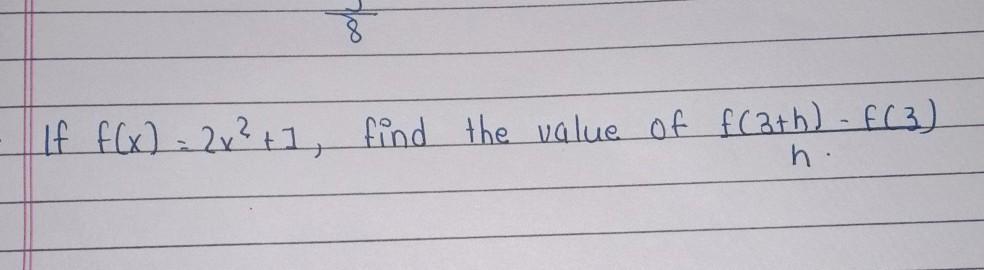 8
If f(x) = 2x² + 1, find the value of f(3+h) - f(3)
h.